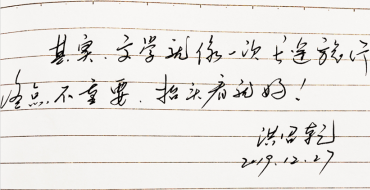 其实，文学就像一次长途旅行
终点不重要，抬头看就好！
洪昭乾
2019.12.27